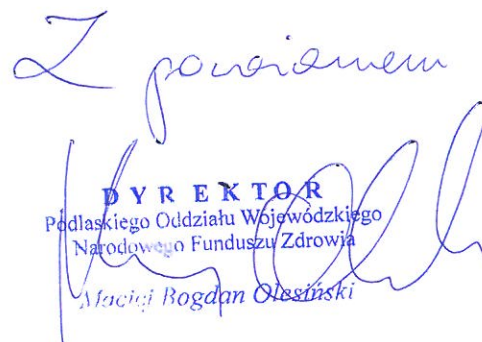 Z poważaniem
DYREKTOR
Podlaskiego Oddziału Wojewódzkiego
Narodowego Funduszu Zdrowia
Maciej Bogdan Olesiński